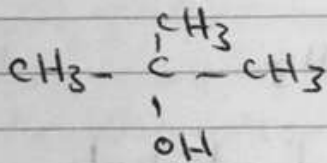 CH3
CH3 - C - CH3
OH